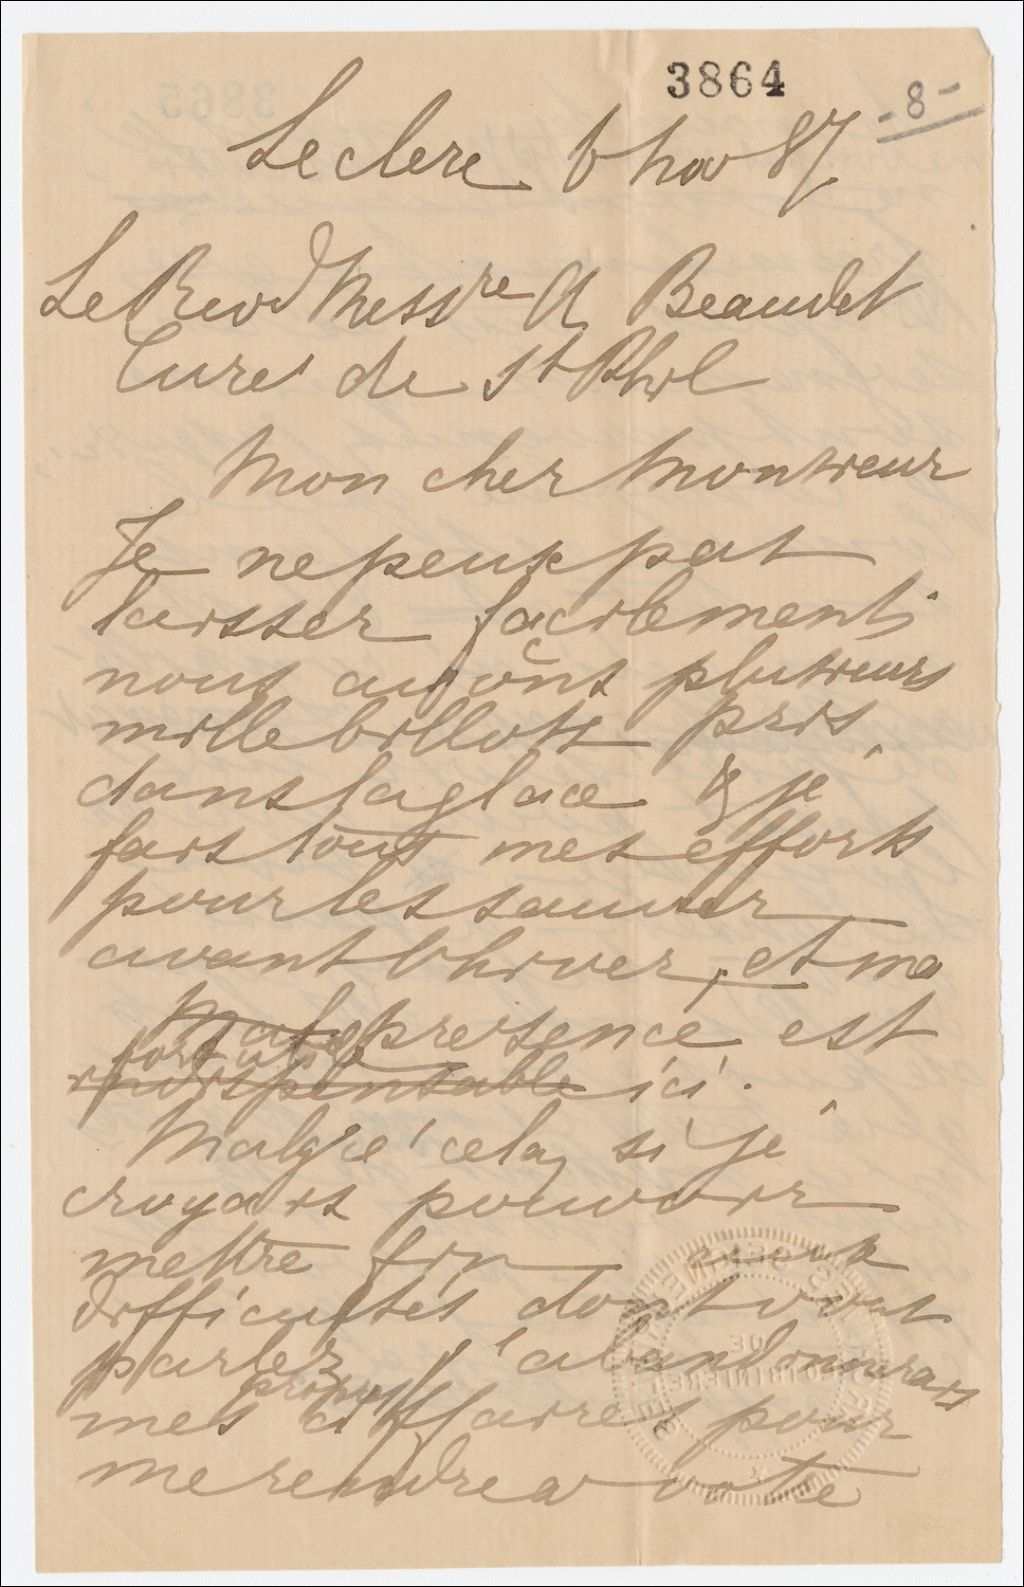 3864
- 8 -
Leclerc 6 nov 87
Le Revd Messre A Beaudet
Curé de St Phil
Mon cher Monsieur
Je ne peux pas
laisser facilement
nous avons plusieurs
mille billots pris
dans la glace & je
fais tous mes efforts
pour les sauver
avant l'hiver, et ma
présence est
fort utile
indispensable ici.
Malgré cela, si je
croyais pouvoir
mettre fin aux
difficultés dont vous
parlez j'abandonnerais
propres
mes affaires pour
me rendre a votre